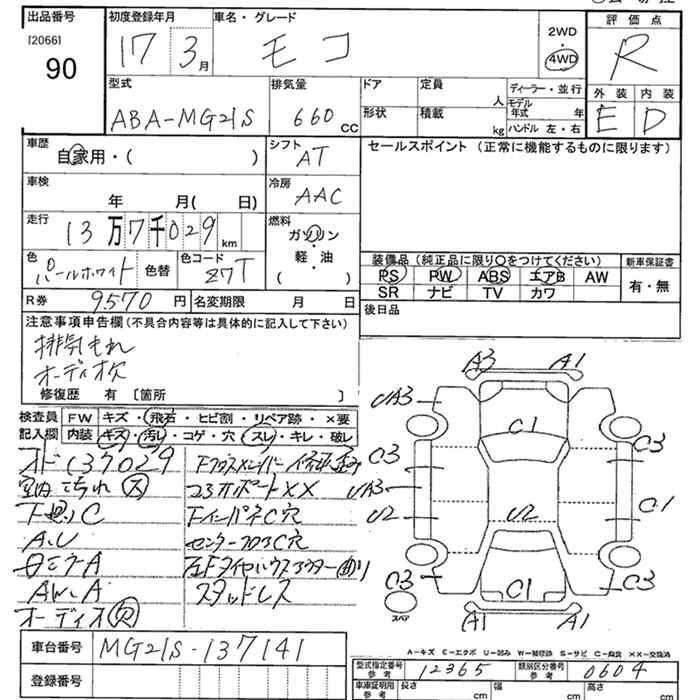 出品番号 初度登録年月 車名・グレード 評価点
[2066]
90
17 3月
モコ
2WD
・
4WD
R
型式 排気量 ドア 定員 人 ディーラー・並行 外装 内装
ABA-MG21S 660cc
形状 積載 kg モデル年式 年
ハンドル 左・右
E D
車歴 シフト セールスポイント(正常に機能するものに限ります)
自家用・( )
AT
車検 冷房
年 月( 日)
AAC
走行 燃料
13万7千029km
ガソリン
・
軽・油
( )
色 色替 色コード
パールホワイト Z7T
装備品(純正品に限り○をつけてください) 新車保証書
PS PW ABS エアB AW
SR ナビ TV カワ
有・無
R券 9570円 名変期限 月 日
後日品
注意事項申告欄(不具合内容等は具体的に記入して下さい)
排気もれ
オーディオ欠
修復歴 有〔箇所 〕
検査員記入欄
FW キズ・飛石・ヒビ割・リペア跡・×要
内装 キズ・汚レ・コゲ・穴・スレ・キレ・破レ
137029
室内 大
下廻りC
A.U
AW.A
オーディオ欠
コアサポートXX
FインパネC穴
センターフロアC穴
スタッドレス
A3 A1
UA3
C3 C1 C3
UA3
U2 U2 C1
C3 C1 C3
スペア
A1 A1
A-キズ E-エクボ U-凹み W-補修跡 S-サビ C-腐食 XX-交換済
車台番号 MG21S-137141
登録番号
型式指定番号 参考 12365 類別区分番号 参考 0604
車車証明用 参考 長さ cm 幅 cm 高さ cm